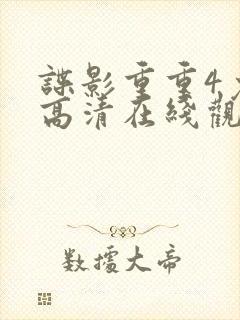 諜影重重4
高清在綫觀
数擄大帝